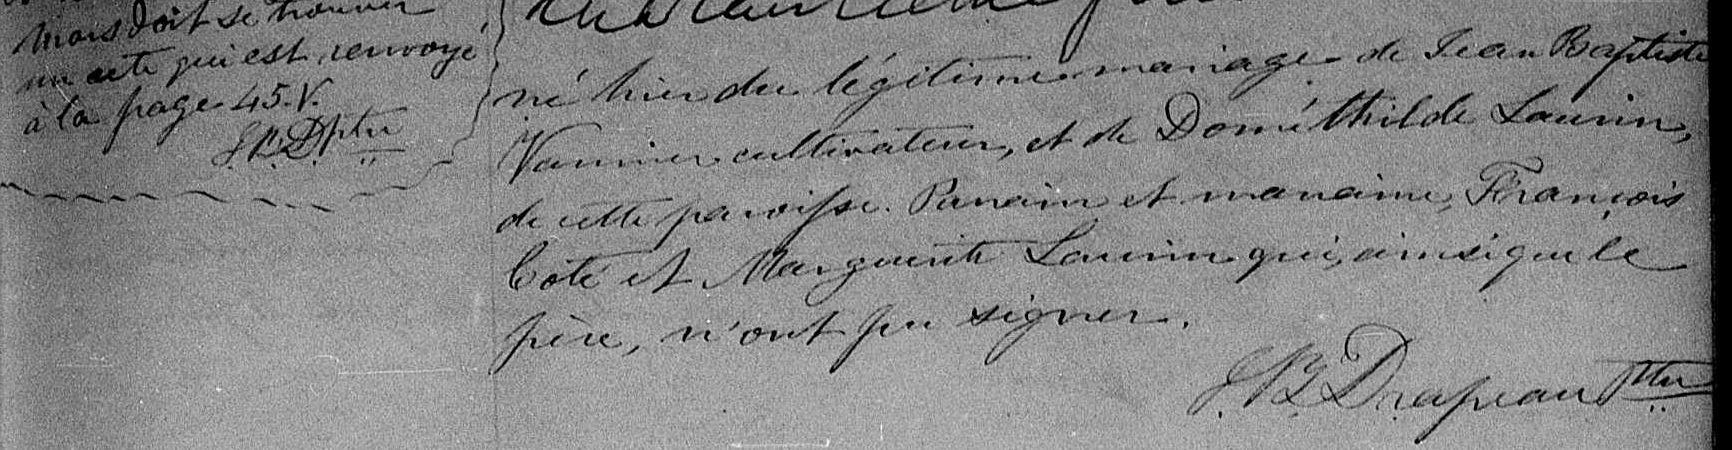 mois doit se trouver
un acte qui est renvoyé
à la page 45.V.
J.B.D. ptre
né hier du légitime mariage de Jean Baptiste
Vannier cultivateur, et de Dométhilde Laurin,
de cette paroisse. Parain et maraine, François
Coté et Marguerite Laurin qui, ainsi que le
père, n'ont pu signer.
J.B. Drapeau Ptre